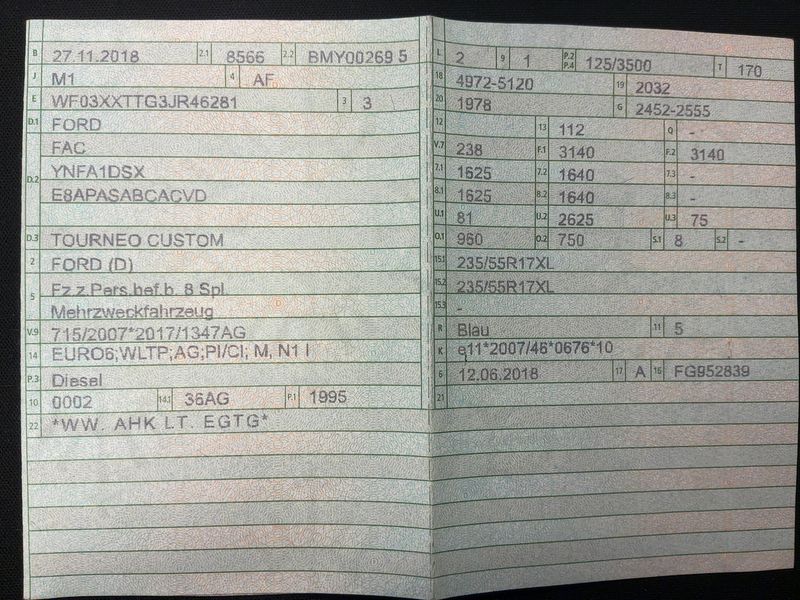 B 27.11.2018 2.1 8566 2.2 BMY00269 5
J M1 4 AF
E WF03XXTTG3JR46281 3 3
D.1 FORD
FAC
D.2 YNFA1DSX
E8APASABCACVD
D.3 TOURNEO CUSTOM
2 FORD (D)
5 Fz.z.Pers.bef.b. 8 Spl.
Mehrzweckfahrzeug
V.9 715/2007*2017/1347AG
14 EURO6;WLTP;AG;PI/CI; M, N1 I
P.3 Diesel
10 0002 14.1 36AG P.1 1995
22 *WW. AHK LT. EGTG*
L 2 9 1 P.2 P.4 125/3500 T 170
18 4972-5120 19 2032
20 1978 G 2452-2555
12 13 112 Q -
V.7 238 F.1 3140 F.2 3140
7.1 1625 7.2 1640 7.3 -
8.1 1625 8.2 1640 8.3 -
U.1 81 U.2 2625 U.3 75
O.1 960 O.2 750 S.1 8 S.2 -
15.1 235/55R17XL
15.2 235/55R17XL
15.3 -
R Blau 11 5
K e11*2007/46*0676*10
6 12.06.2018 17 A 16 FG952839
21